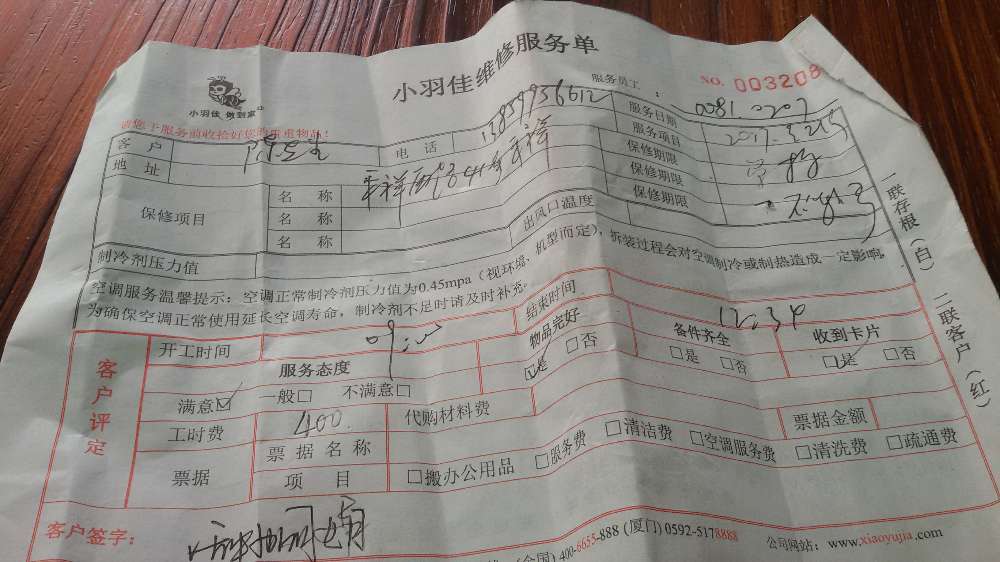 小羽佳维修服务单
小羽佳 做到家
NO. 003208
请您于服务前收拾好您的贵重物品!
服务员工: 0081.2207
客户 陈先生 电话 服务日期 2017.3.25
地址 服务项目
保修项目 名称 保修期限
名称 保修期限
名称 保修期限
制冷剂压力值 出风口温度
空调服务温馨提示:空调正常制冷剂压力值为0.45mpa(视环境、机型而定),拆装过程会对空调制冷或制热造成一定影响,
为确保空调正常使用延长空调寿命,制冷剂不足时请及时补充。
客户评定
开工时间 结束时间 12:34
服务态度 物品完好 备件齐全 收到卡片
满意☑ 一般□ 不满意□ ☑是 □否 □是 □否 ☑是 □否
工时费 400 代购材料费 票据金额
票据 票据名称 □搬办公用品 □服务费 □清洁费 □空调服务费 □清洗费 □疏通费
项目
客户签字:
(全国) 400-6655-888 (厦门) 0592-5178888 公司网站:www.xiaoyujia.com
一联存根(白) 二联客户(红)